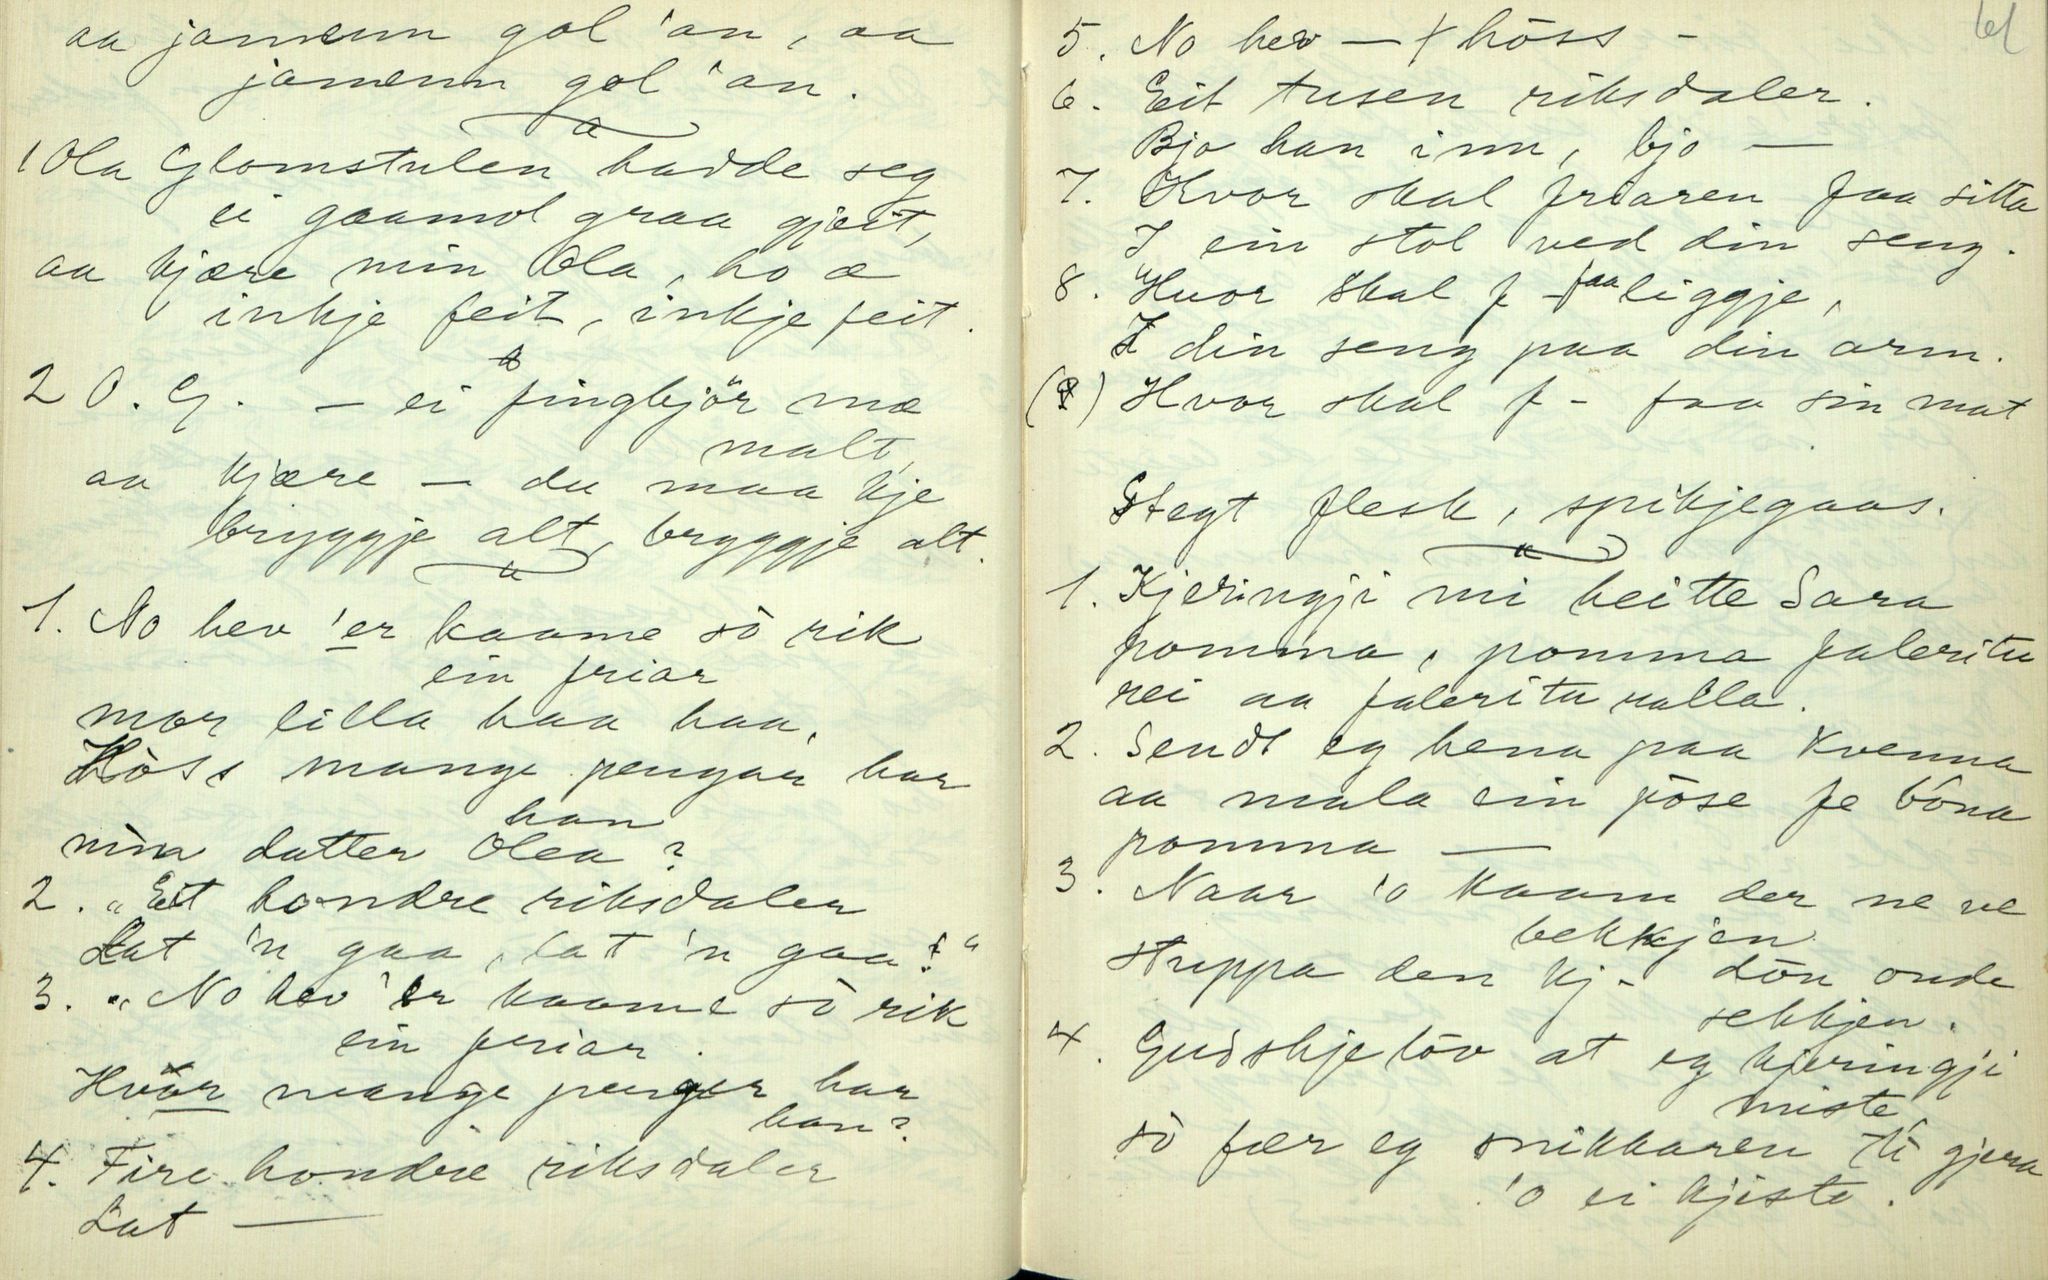 aa jamenn gol 'an, aa
jamenn gol 'an.
1 Ola Glomstulen hadde seg
ei gaamol graa gjeit,
aa kjære min Ola, ho æ
inkje feit, inkje feit.
2 O. G. — ei fingbjör mæ
malt,
aa kjære — du maa kje
bryggje alt, bryggje alt.
1. No hev 'er kaame sò rik
ein friar
mor lilla haa haa,
Hòss mange pengar har
han
min datter Olea?
2. „Eit hondre riksdaler
Lat 'n gaa, lat 'n gaa!"
3. „No hev 'er kaame sò rik
ein friar.
Hvòr mange penger har
han?
4. Fire hondre riksdaler
Lat —
61
5. No hev — + hòss -
6. Eit tusen riksdaler.
Bjo han inn, bjo —
7. Hvor skal friaren faa sitta
I ein stol ved din seng.
8. Hvor skal f - faa liggje,
I din seng paa din arm.
() Hvor skal f - faa sin mat
Stegt flesk, spikjegaas.
1. Kjeringji mi heitte Sara
pomma, pomma faleritu
rei aa faleritu ralla.
2. Sendt eg hena paa Kvenna
aa mala ein pöse fe bòna
pomma —
3. Naar 'o kaam der ne ve
bekkjen
stuppa den kj - dön onde
sekkjen.
4. Gudskjelöv at eg kjeringji
miste,
sò fær eg snikkaren te gjera
'o ei kjiste.